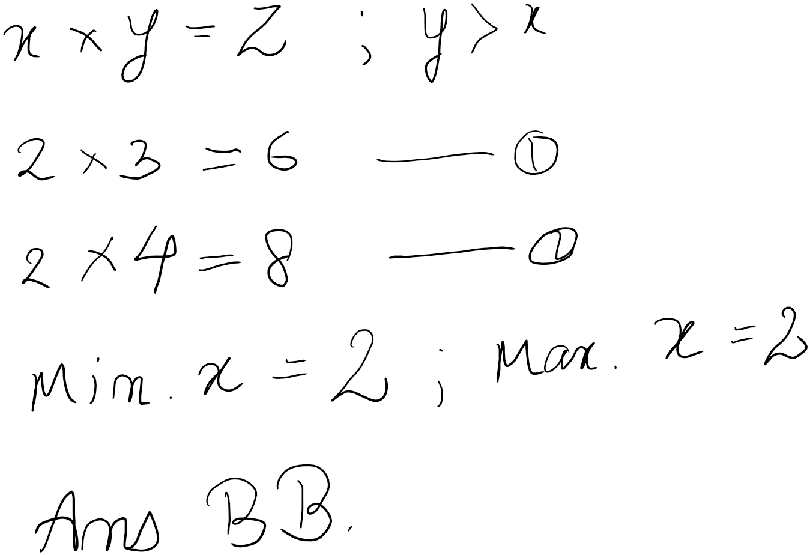 x × y = Z ; y > x
2 × 3 = 6 — ①
2 × 4 = 8 — ①
Min. x = 2 ; Max. x = 2
Ans BB.